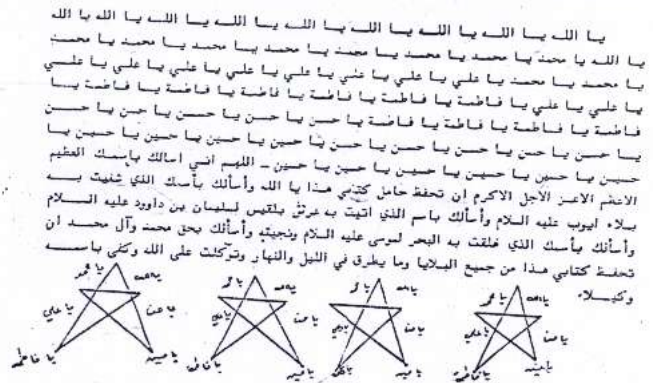 يا الله يا الله يا الله يا الله يا الله يا الله يا الله يا الله يا الله
يا الله يا محمد يا محمد يا محمد يا محمد يا محمد يا محمد يا محمد يا محمد
يا محمد يا محمد يا علي يا علي يا علي يا علي يا علي يا علي يا علي يا علي
يا علي يا علي يا فاطمة يا فاطمة يا فاطمة يا فاطمة يا فاطمة يا فاطمة يا
فاطمة يا فاطمة يا فاطمة يا فاطمة يا حسن يا حسن يا حسن يا حسن يا حسن
يا حسن يا حسن يا حسن يا حسن يا حسن يا حسين يا حسين يا حسين يا حسين يا
حسين يا حسين يا حسين يا حسين يا حسين يا حسين ـ اللهم اني اسالك بإسمك العظيم
الاعظم الاعز الاجل الاكرم ان تحفظ حامل كتابي هذا يا الله وأسألك بأسمك الذي شفيت به
بلاء ايوب عليه السلام وأسألك باسم الذي اتيت به عرش بلقيس لسليمان بن داوود عليه السلام
وأسألك بأسمك الذي فلقت به البحر لموسى عليه السلام ونجيته وأسألك بحق محمد وآل محمد ان
تحفظ كتابي هذا من جميع البلايا وما يطرق في الليل والنهار وتوكلت على الله وكفى باسمه
وكيلاً
يا الله يا محمد يا الله يا محمد يا الله يا محمد يا الله يا محمد
يا حسن يا علي يا حسن يا علي يا حسن يا علي يا حسن يا علي
يا حسين يا فاطمة يا حسين يا فاطمة يا حسين يا فاطمة يا حسين يا فاطمة